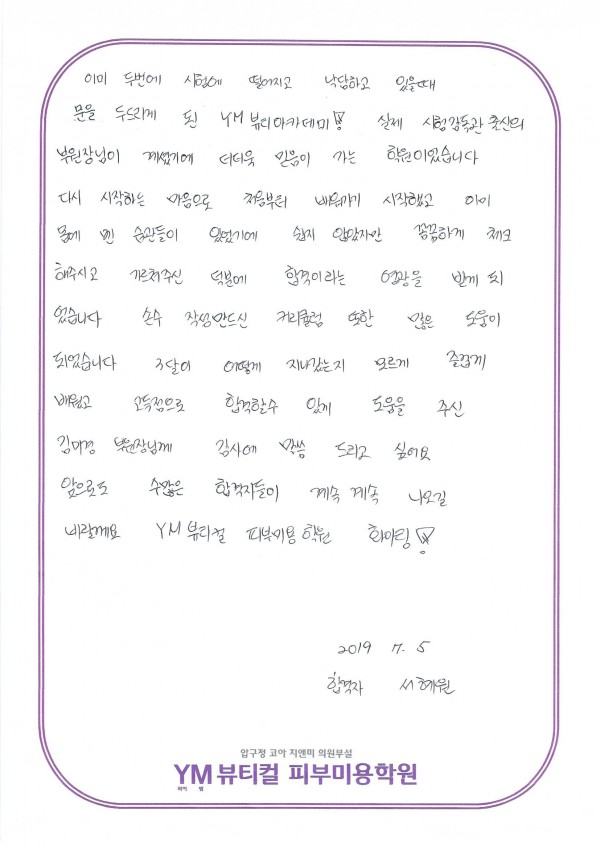 이미 두번에 시험에 떨어지고 낙담하고 있을때
문을 두드리게 된 YM 뷰티아카데미! 실제 시험감독관 출신의
부원장님이 계셨기에 더더욱 믿음이 가는 학원이었습니다
다시 시작하는 마음으로 처음부터 배워가기 시작했고 이미
몸에 벤 습관들이 있었기에 쉽지 않았지만 꼼꼼하게 체크
해주시고 가르쳐주신 덕분에 합격이라는 영광을 받게 되
었습니다 손수 작성만드신 커리큘럼 또한 많은 도움이
되었습니다 3달이 어떻게 지나갔는지 모르게 즐겁게
배웠고 고득점으로 합격할수 있게 도움을 주신
김미경 부원장님께 감사에 말씀 드리고 싶어요
앞으로도 수많은 합격자들이 계속 계속 나오길
바랄께요 YM 뷰티컬 피부미용 학원 화이팅!
2019 7. 5
합격자 서혜원
압구정 코아 지앤미 의원부설
YM 뷰티컬 피부미용학원
와이 엠